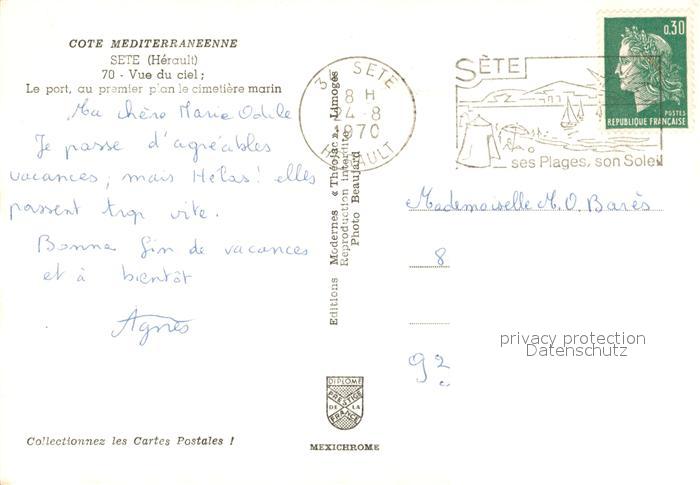 COTE MEDITERRANEENNE
SETE (Hérault)
70 - Vue du ciel ;
Le port, au premier plan le cimetière marin
Ma chère Marie Odile
Je passe d'agréables
vacances, mais Helas! elles
passent trop vite.
Bonne fin de vacances
et à bientôt
Agnès
Collectionnez les Cartes Postales !
Editions Modernes « Théojac », Limoges
Reproduction interdite
Photo Beaujard
DIPLOME
PRESTIGE
DE LA
FRANCE
MEXICHROME
3 SETE
8 H
24-8
1970
HERAULT
SÈTE
ses Plages, son Soleil
0,30
POSTES
REPUBLIQUE FRANÇAISE
Mademoiselle M. O. Barès
8
92
privacy protection
Datenschutz